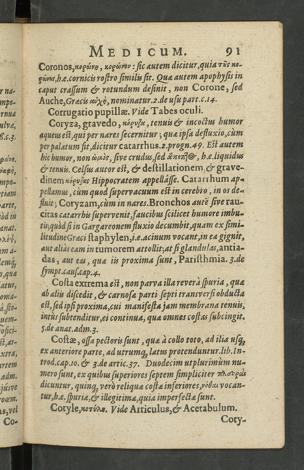 MEDICUM. 91
Coronos, κορώνη, κορώνην: sic autem dicitur, quia τῆς κο-
ρώνης, h.e. cornicis rostro similis sit. Quæ autem apophysis in
caput crassum & rotundum desinit, non Corone, sed
Auche, Græcis αὐχὴ, nominatur. 2. de usu part. c. 14.
Corrugatio pupillæ. Vide Tabes oculi.
Coryza, gravedo, κόρυζα, tenuis & incoctus humor
aqueus est, qui per nares secernitur, quæ ipsa defluxio, cùm
per palatum fit, dicitur catarrhus. 2. progn. 49. Est autem
hic humor, non ὠμὸς, sive crudus, sed h.e. liquidus
& tenuis. Celsus autor est, & destillationem, & grave-
dinem κόρυζας Hippocratem appellâsse. Catarrhum ap-
pellamus, cùm quod supervacuum est in cerebro, in os de-
fluit; Coryzam, cùm in nares. Bronchos autē sive rau-
citas catarrhis supervenit, faucibus scilicet humore imbu-
tis; quòd si in Gargareonem fluxio decumbit, quam ex simi-
litudine Græci staphylen, i.e. acinum vocant, in ea gignit,
aut alias eam in tumorem attollit; at si glandulas, antia-
das, aut eas, quæ iis proxima sunt, Paristhmia. 3. de
sympt. caus. cap. 4.
Costa extrema est, non parva illa reverà spuria, quæ
ab aliis discedit, & carnosa parti septi transversi obducta
est, sed ipsi proxima, cui manifesta jam membrana tenuis,
intus subtenditur, ei continua, quæ omnes costas subcingit.
5. de anat. adm. 3.
Costæ, ossa pectoris sunt, quæ à collo toto, ad ilia usq;
ex anteriore parte, ad utrumq; latus protenduntur. lib. In-
trod. cap. 10. & 3. de artic. 37. Duodecim utplurimùm nu-
mero sunt, ex quibus superiores septem simpliciter πλευραὶ
dicuntur, quinq; verò reliquæ costæ inferiores, νόθαι vocan-
tur, h.e. spuriæ, & illegitimæ, quia imperfectæ sunt.
Cotyle, κοτύλη. Vide Articulus, & Acetabulum.
Coty-